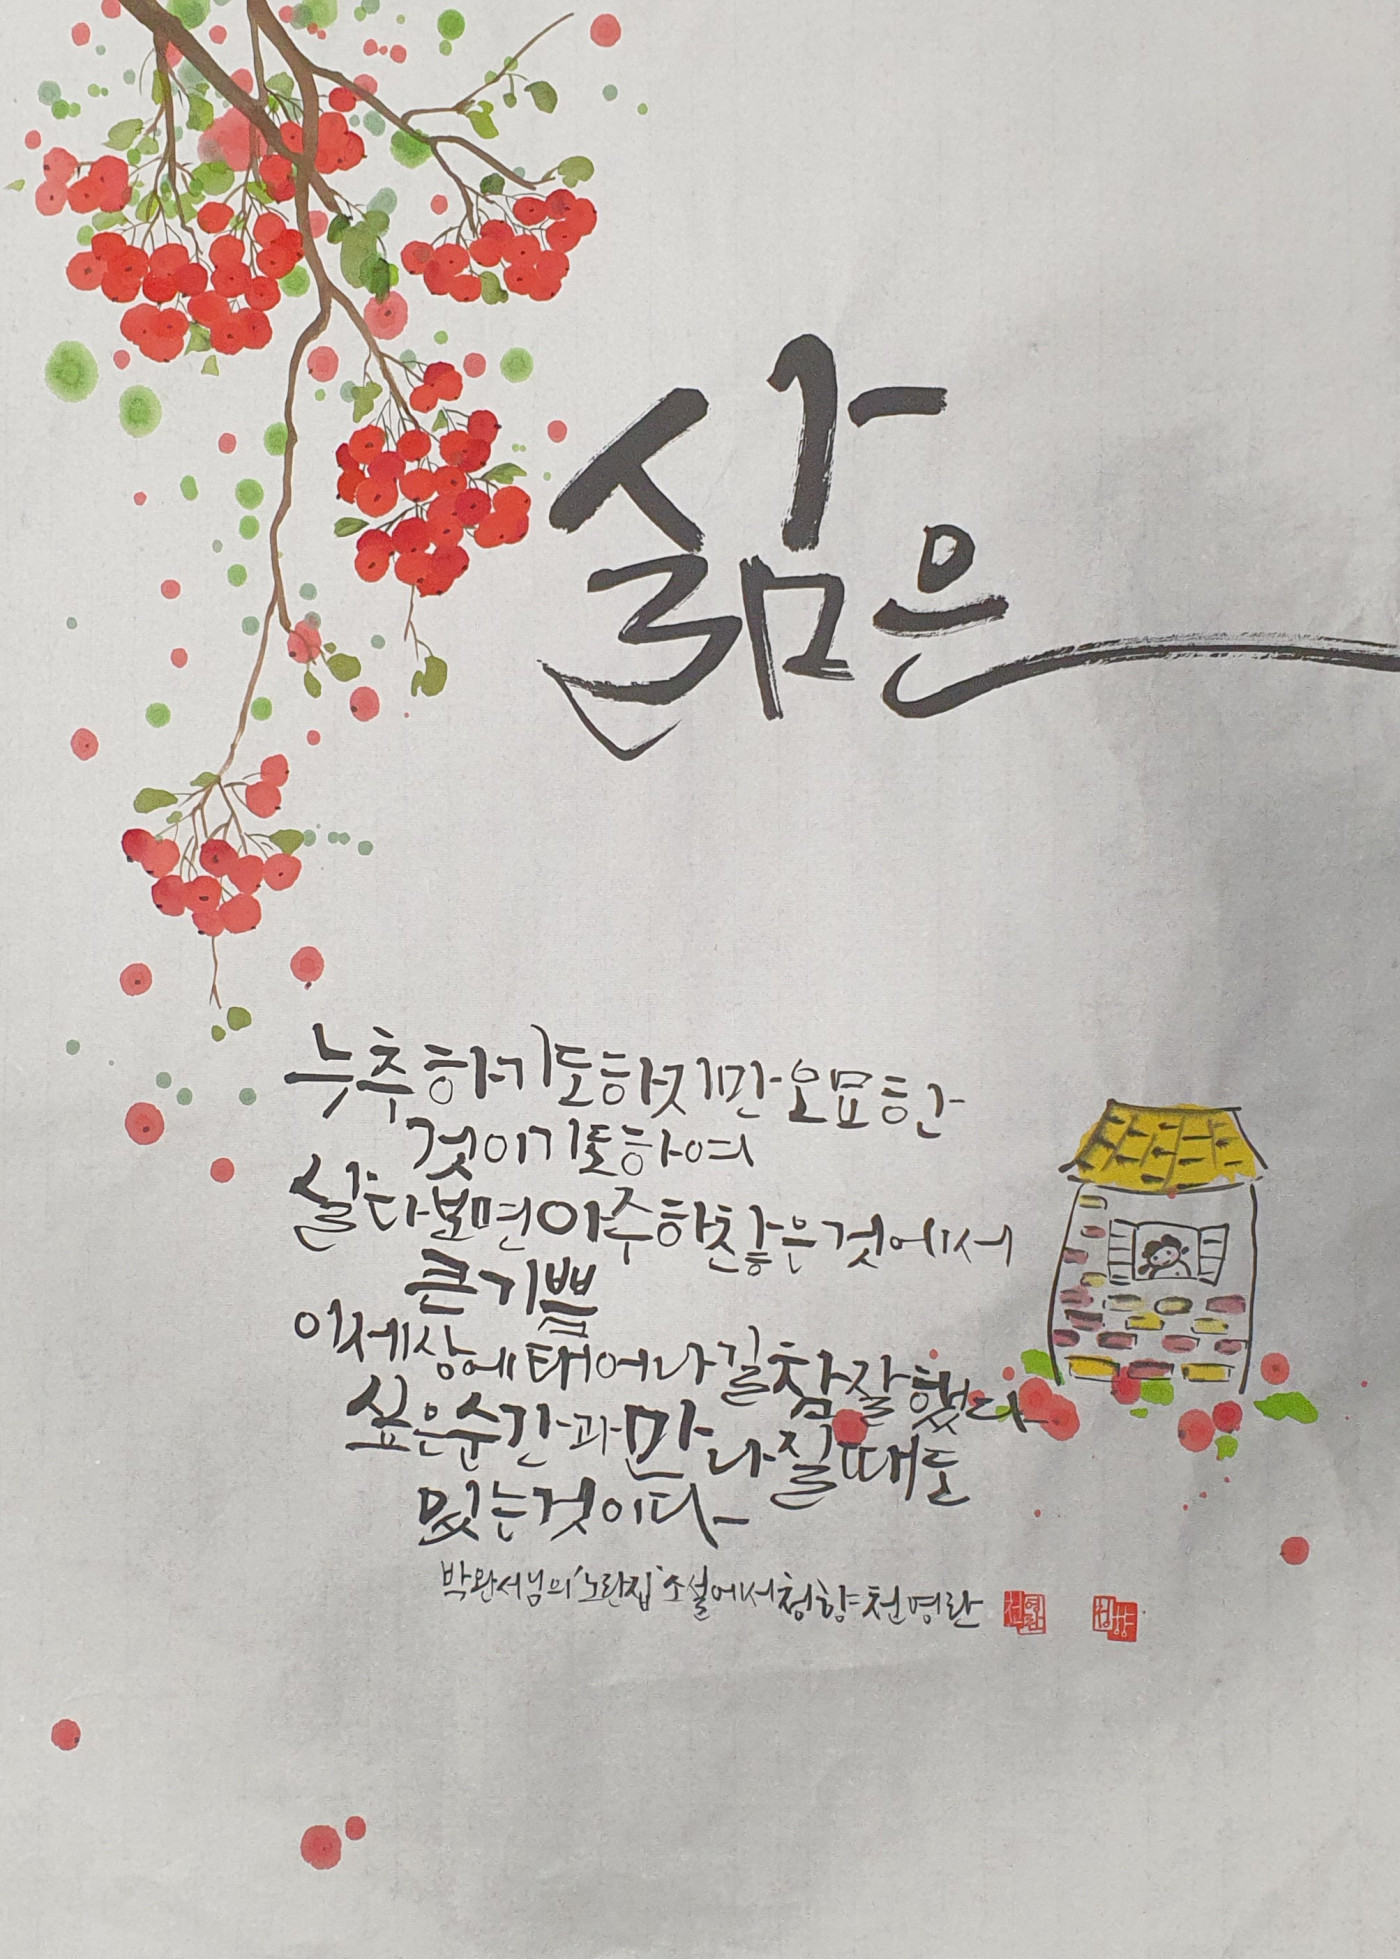 삶은
누추하기도하지만오묘한
것이기도하여
살다보면아주하찮은것에서
큰기쁨
이세상에태어나길참잘했다
싶은순간과만나질때도
있는것이다
박완서님의'노란집'소설에서청향천명란
천명란
청향